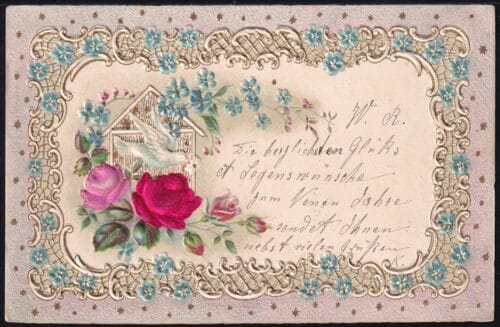 W. R.
Die herzlichsten Glücks
& Segenswünsche
zum Neuen Jahre
sendet Ihnen
nebst vielen Grüßen
K.